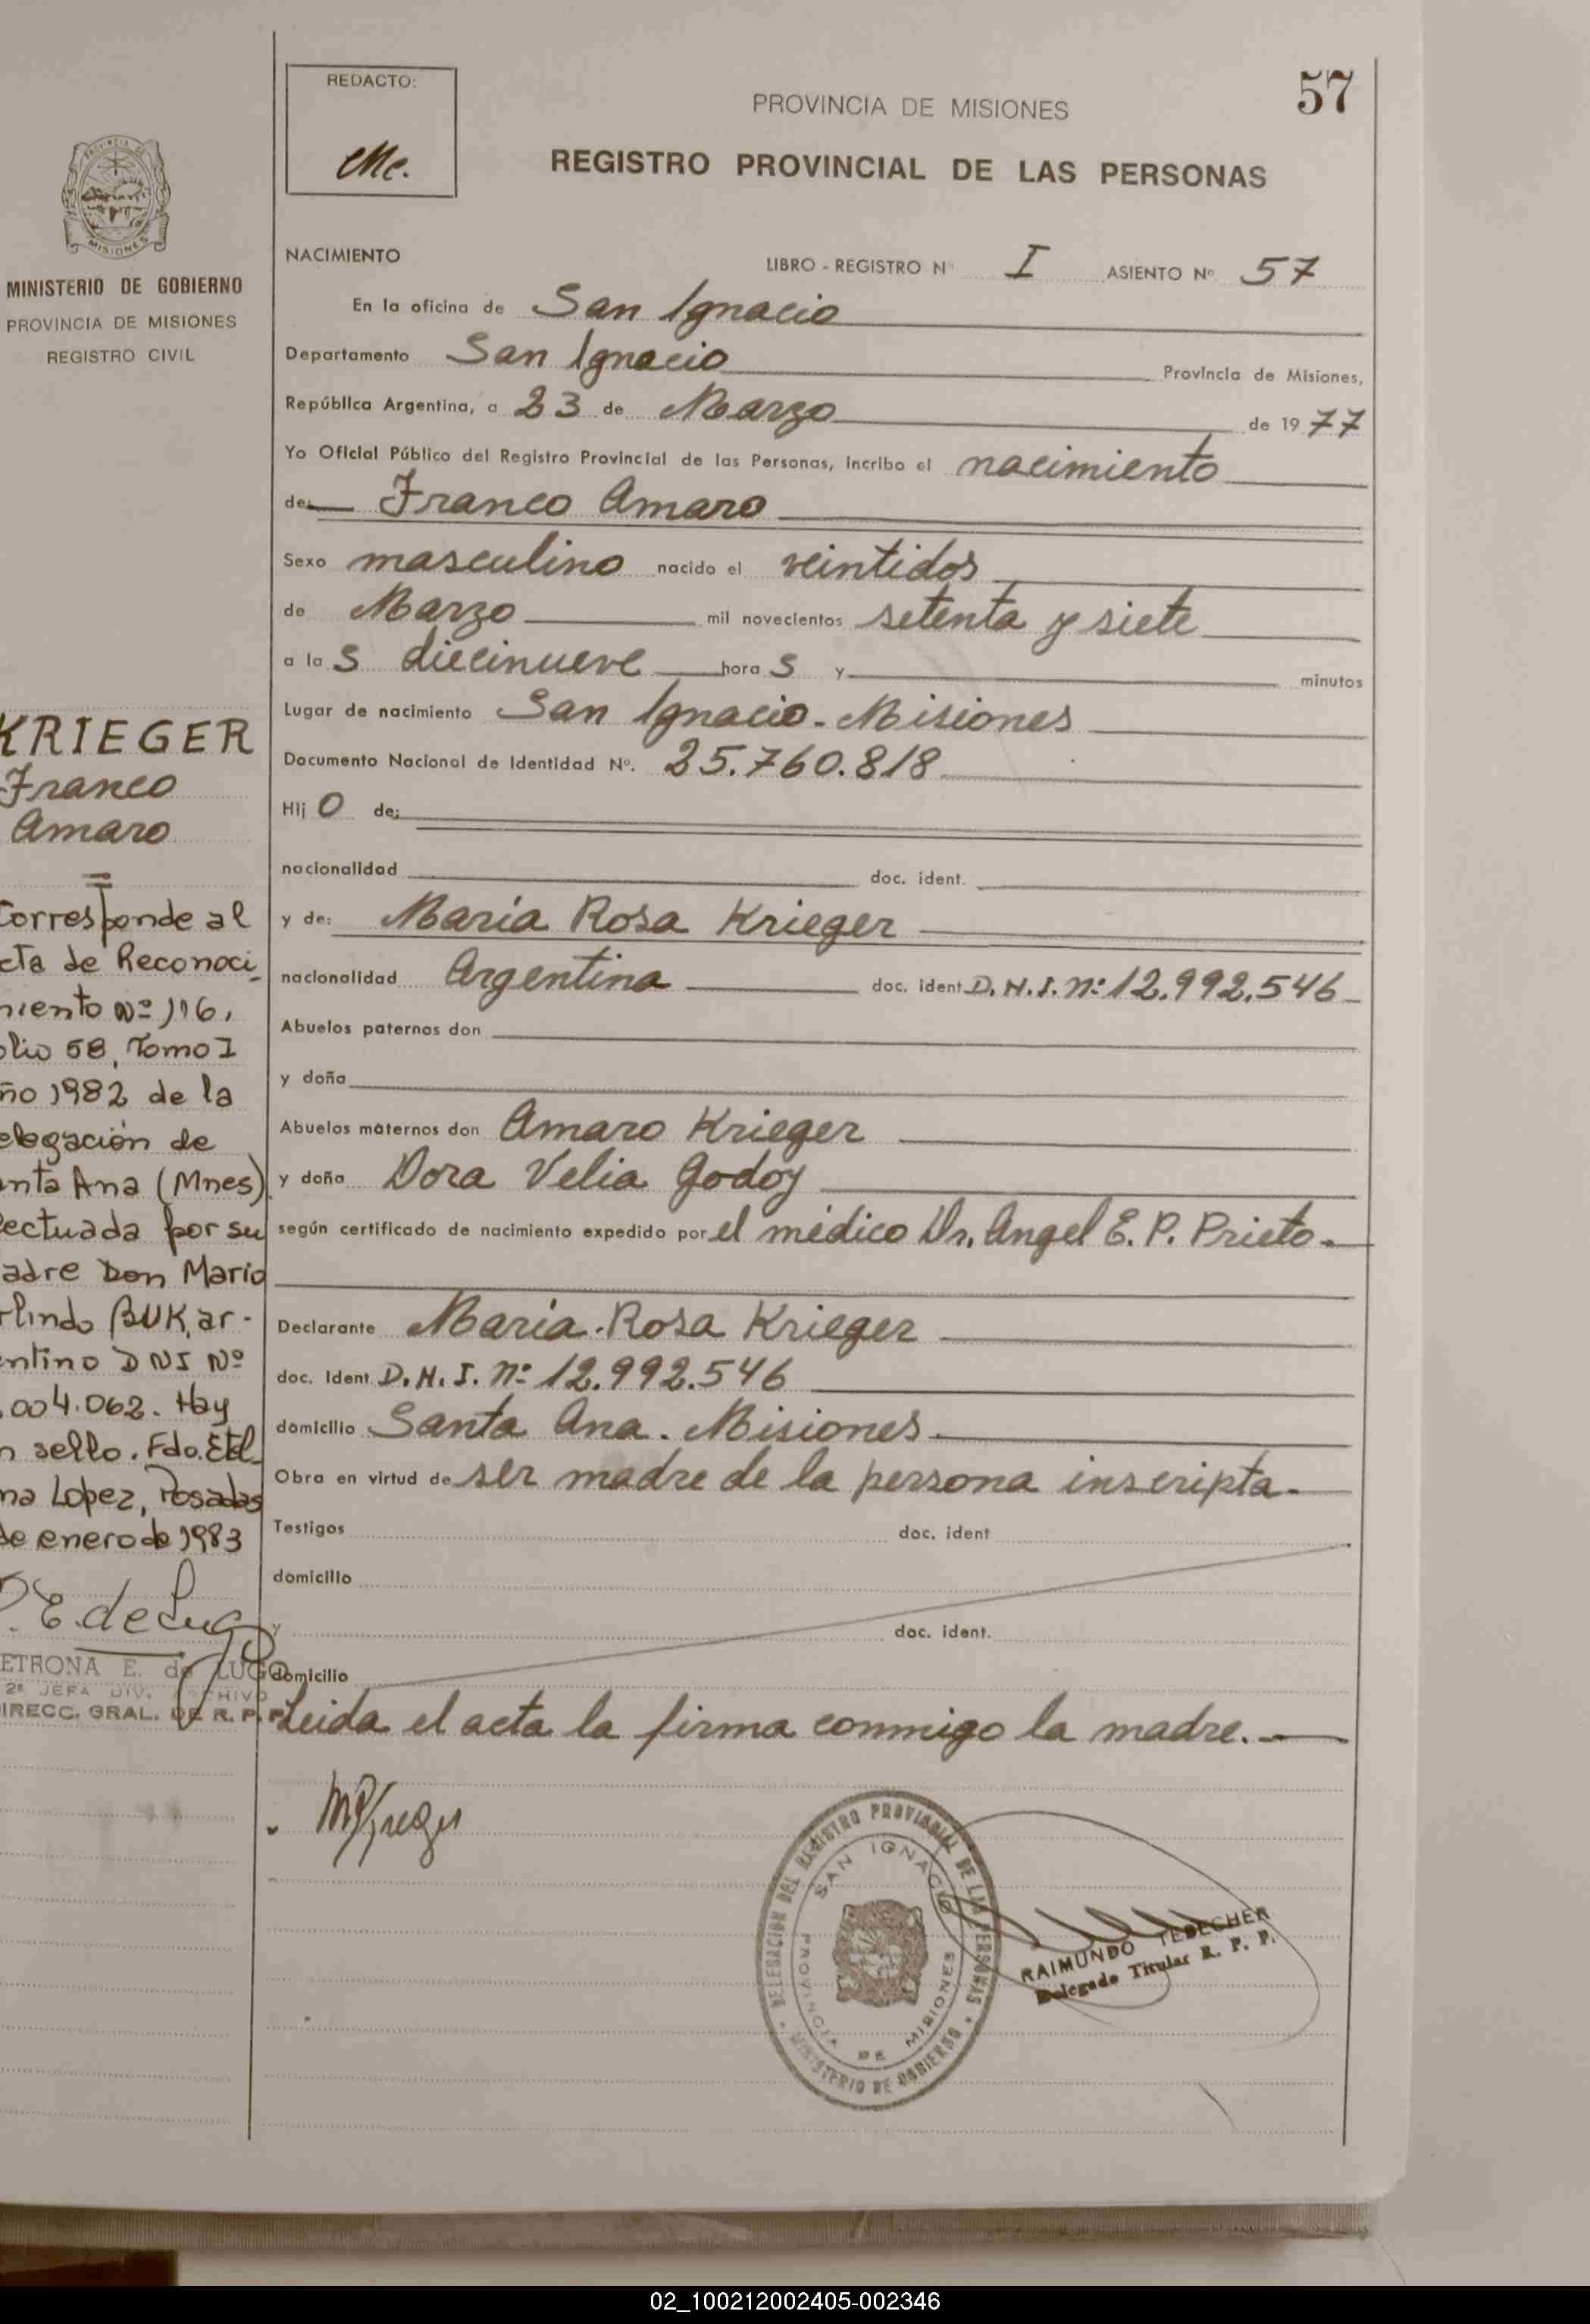 REDACTO:
Me.
PROVINCIA DE MISIONES
57
REGISTRO PROVINCIAL DE LAS PERSONAS
MISIONES
MINISTERIO DE GOBIERNO
PROVINCIA DE MISIONES
REGISTRO CIVIL
NACIMIENTO LIBRO - REGISTRO Nº I ASIENTO Nº 57
En la oficina de San Ignacio
Departamento San Ignacio Provincia de Misiones,
República Argentina, a 23 de Marzo de 1977
Yo Oficial Público del Registro Provincial de las Personas, incribo el nacimiento
de: Franco Amaro
Sexo masculino nacido el veintidos
de Marzo mil novecientos setenta y siete
a las diecinueve horas y minutos
Lugar de nacimiento San Ignacio - Misiones
Documento Nacional de Identidad Nº. 25.760.818
Hijo de:
nacionalidad doc. ident.
y de: Maria Rosa Krieger
nacionalidad Argentina doc. ident D.N.I. nº: 12.992.546
Abuelos paternos don
y doña
Abuelos maternos don Amaro Krieger
y doña Dora Velia Godoy
según certificado de nacimiento expedido por el médico Dr. Angel E. P. Prieto.
Declarante Maria Rosa Krieger
doc. ident D.N.I. nº: 12.992.546
domicilio Santa Ana. Misiones
Obra en virtud de ser madre de la persona inscripta.
Testigos doc. ident
domicilio
y doc. ident.
domicilio
Leida el acta la firma conmigo la madre.
KRIEGER
Franco
Amaro
Corresponde al
cta de Reconoci
miento Nº 116,
olio 58, Tomo I
ño 1982 de la
elegación de
anta Ana (Mnes)
ectuada por su
adre Don Mario
rlindo BUK, ar-
entino DNI Nº
.004.062. Hay
n sello. Fdo. Etel
na Lopez, Posadas
de enero de 1983
P. E. de Lugo
ETRONA E. de LUGO
2ª JEFA DIV. ARCHIVO
DIRECC. GRAL. DE R. P. P.
DELEGACION DEL REGISTRO PROVINCIAL DE LAS PERSONAS
SAN IGNACIO
PROVINCIA DE MISIONES
MINISTERIO DE GOBIERNO
RAIMUNDO TEDECHER
Delegado Titular R. P. P.
02_100212002405-002346